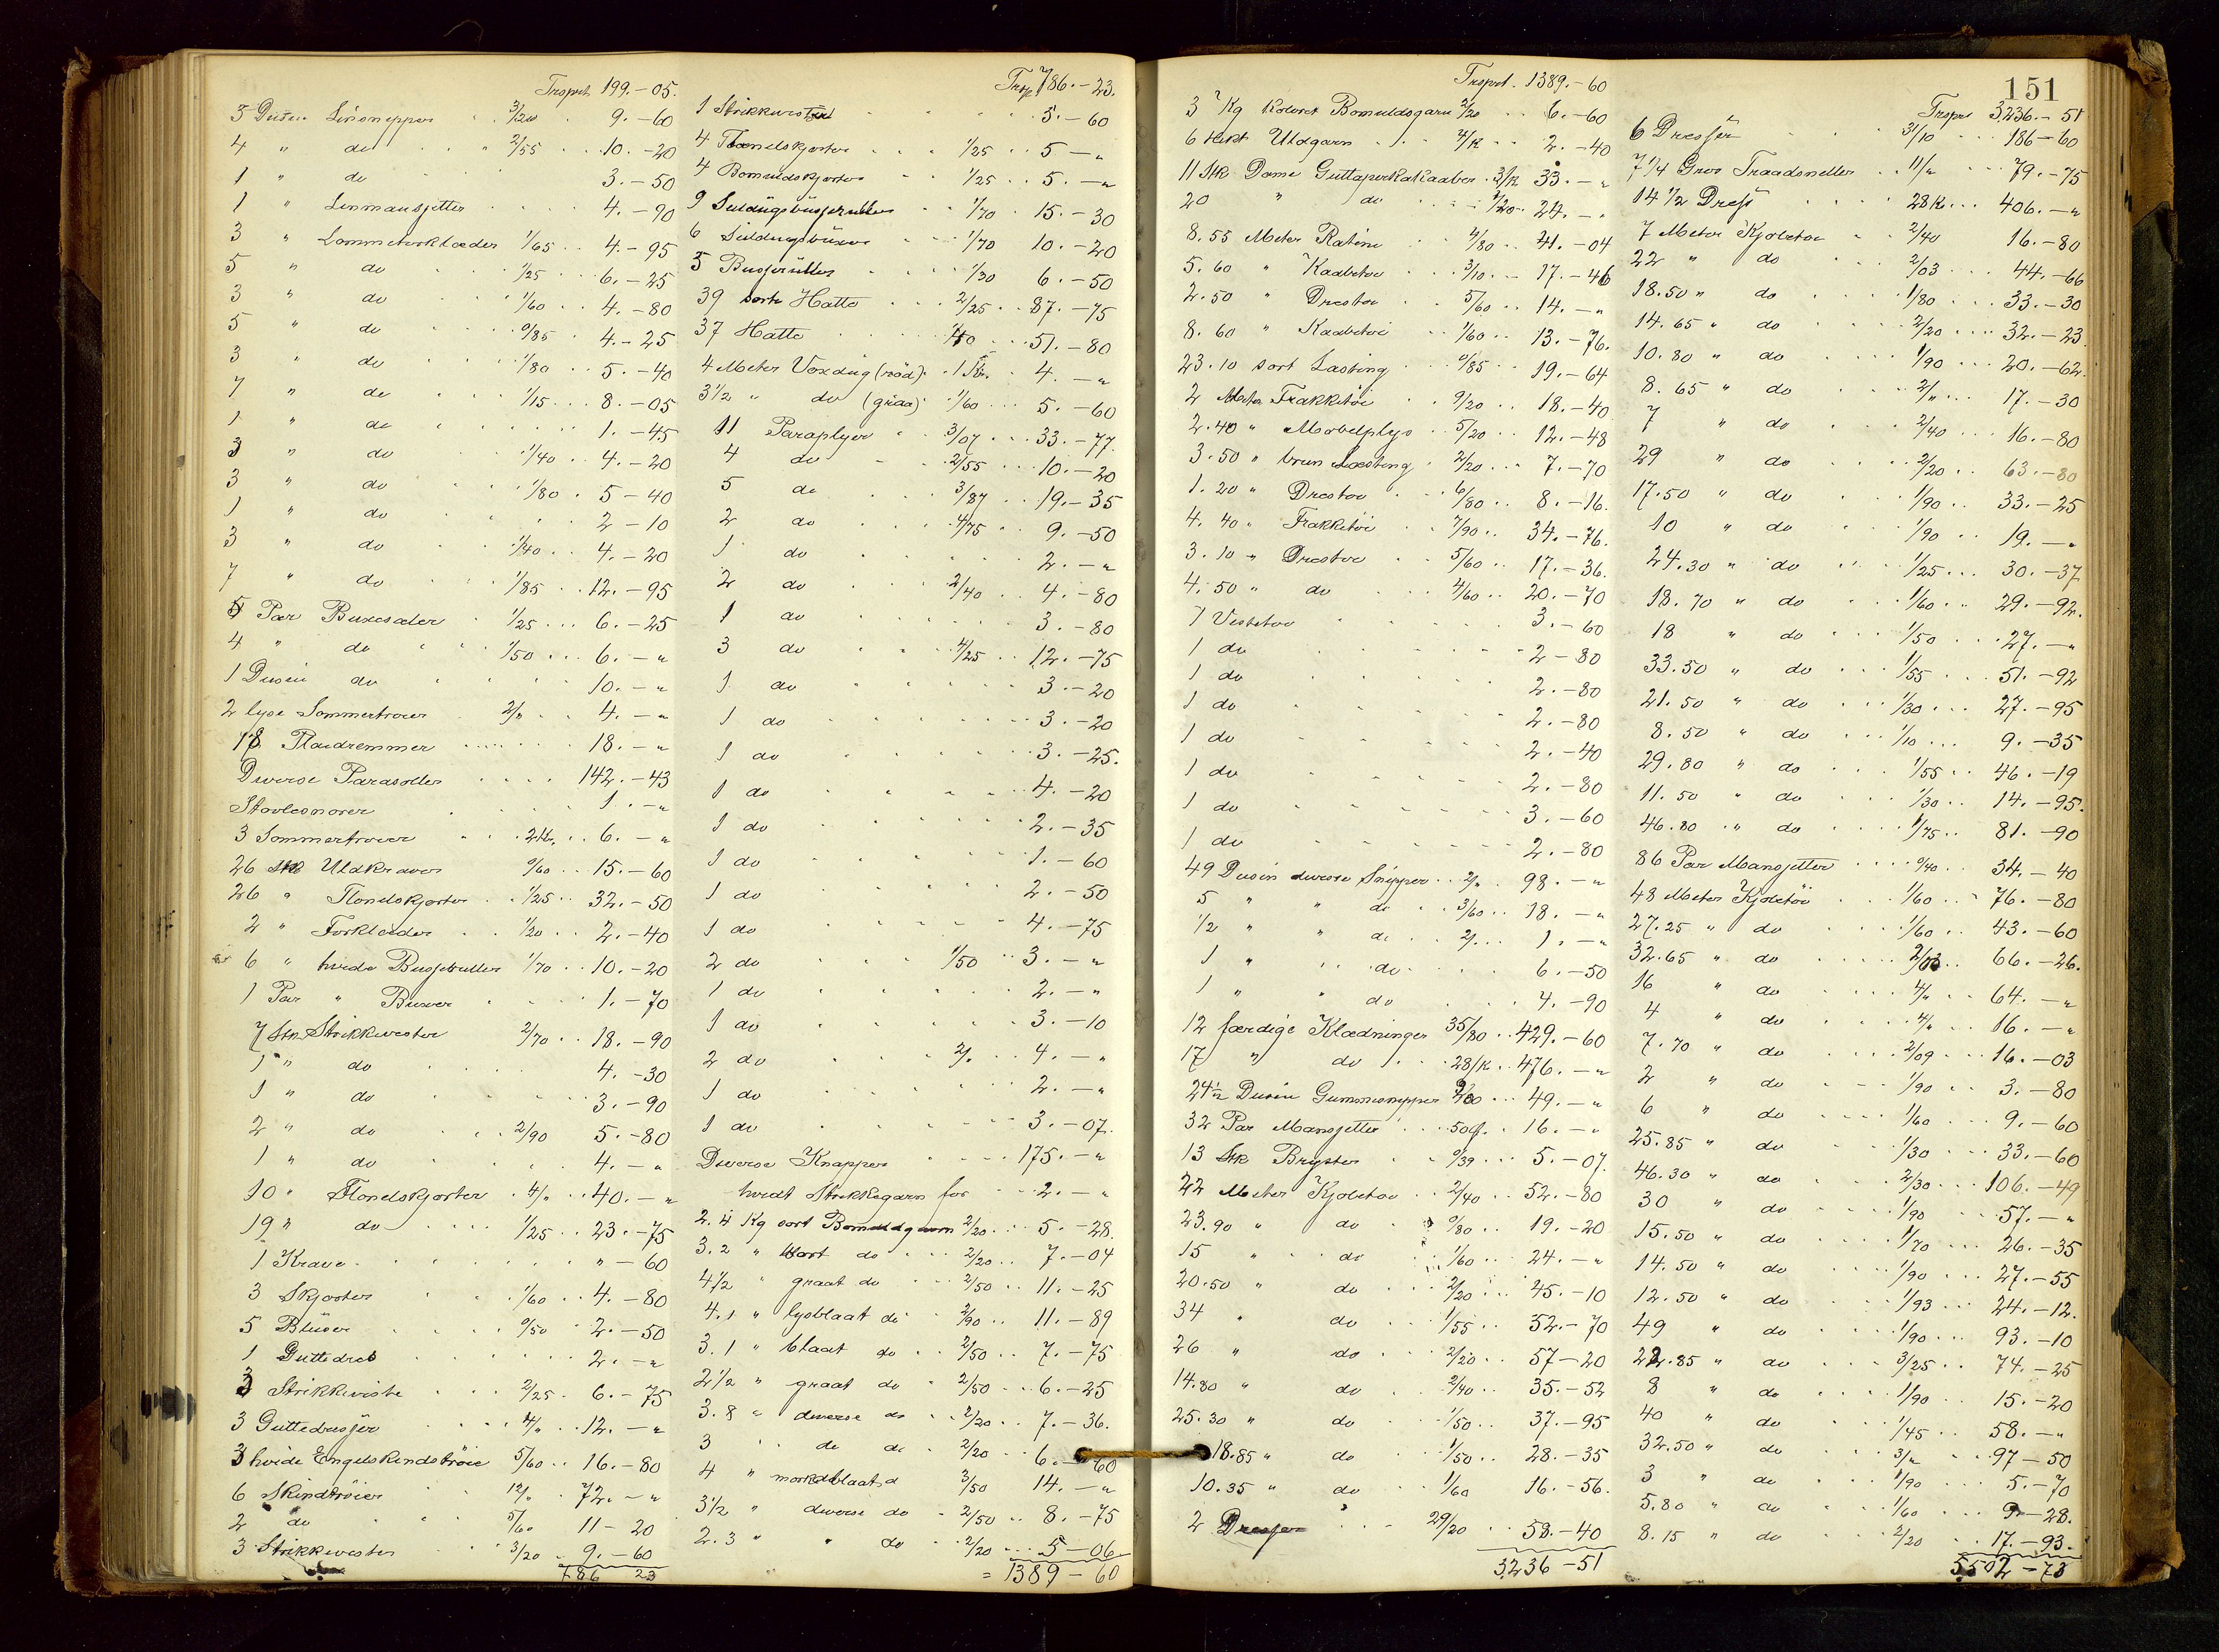 Trsprt. 199.-05.
3 Dusin Linsnipper 3/20 9.-60
4 " do 2/55 10.-20
1 " do 3.-50
1 " Linmansjetter 4.-90
3 " Lommetørklæder 1/65 4.-95
5 " do 1/25 6.-25
3 " do 1/60 4.-80
5 " do 0/85 4.-25
3 " do 1/80 5.-40
7 " do 1/15 8.-05
1 " do 1.-45
3 " do 1/40 4.-20
3 " do 1/80 5-40
1 " do 2-10
3 " do 1/40 4.-20
7 " do 1/85 12.-95
5 Par Buxesæler 1/25 6.-25
4 " do 1/50 6.-"
1 Dusin do 10.-"
2 lyse Sommertrøier 2/" 4.-"
18 Plaidremmer 18.-"
Diverse Parasoller 142.-43
Støvlesnorer 1.-"
3 Sommertrøier 2Kr. 6.-"
26 Stk Uldkraver 0/60 15.-60
26 " Flonelskjorter 1/25 32.-50
2 " Forklæder 1/20 2.-40
6 " hvide Busseruller 1/70 10.-20
1 Par " Buxer 1.-70
7 Stk Strikkevester 2/70 18.-90
1 " do 4.-30
1 " do 3.-90
2 " do 2/90 5.-80
1 " do 4.-"
10 " Flonelskjorter 4/" 40.-"
19 " do 1/25 23.-75
1 Krave "-60
3 Skjorter 1/60 4.-80
5 Bluser 0/50 2.-50
1 Guttedres 2.-"
3 Strikkeveste 2/25 6.-75
3 Guttedresser 4/" 12.-"
3 hvide Engelskindstrøie 5/60 16.-80
6 Skindtrøier 12/" 72.-"
2 do 5/60 11-20
3 Strikkevester 3/20 9.-60
786 23
Trsp. 786.-23.
1 Strikkevest 5.-60
4 Flonelskjorter 1/25 5-"
4 Bomuldskjorter 1/25 5.-"
9 Seildugsbusseruller 1/70 15.-30
6 Seildugsbuxer 1/70 10.-20
5 Busseruller 1/30 6.-50
39 sorte Hatte 2/25 87.-75
37 Hatte 1/40 51.-80
4 Meter Voxdug (rød) 1 Kr. 4.-"
3 1/2 " do (graa) 1/60 5.-60
11 Paraplyer 3/07 33.-77
4 do 2/55 10.-20
5 do 3/87 19.-35
2 do 4/75 9.-50
1 do 2.-"
2 do 2/40 4.-80
1 do 3.-80
3 do 4/25 12.-75
1 do 3.-20
1 do 3.-20
1 do 3.-25.
1 do 4.-20
1 do 2.-35
1 do 1.-60
1 do 2.-50
1 do 4.-75
2 do 1/50 3.-"
1 do 2.-"
1 do 3.-10
2 do 2/" 4.-"
1 do 2.-"
1 do 3.-07.
Diverse Knapper 175.-"
hvidt Strikkegarn for 2.-"
2.4 Kg sort Bomuldgarn 2/20 5.-28.
3.2 " sort do 2/20 7.-04
4 1/2 " graat do 2/50 11.-25
4.1 " lysblaat do 2/90 11.-89
3.1 " blaat do 2/50 7.-75
2 1/2 " graat do 2/50 6.-25
3.8 " diverse do 2/20 7.-36.
3 " do do 2/20 6.-60
4 " mørkblaat d 3/50 14.-"
3 1/2 " diverse do 2/50 8.-75
2.3 " " do 2/20 5-06
= 1389-60
Trsprt. 1389.-60
3 Kg Kulørt Bomuldsgarn 2/20 6.-60
6 Hekt Uldgarn 4/K 2.-40
11 Stk Dame Guttaperkakaaber 3/K 33.-"
20 " do 1/20 24.-"
8.55 Meter Ratine 4/80 41.-04
5.60 " Kaabetøi 3/10 17.-46
2.50 " Drestøi 5/60 14.-"
8.60 " Kaabetøi 1/60 13.-76.
23.10 sort Lasting 0/85 19.-64
2 Meter Frakketøi 9/20 18.-40
2.40 " Møbelplys 5/20 12.-48
3.50 " brun Lasting 2/20 7.-70
1.20 " Drestøi 6/80 8.-16.
4.40 " Frakketøi 7/90 34.-76.
3.10 " Drestøi 5/60 17.-36.
4.50 " do 4/60 20.-70
1 Vestetøi 3.-60
1 do 2-80
1 do 2.-80
1 do 2.-80
1 do 2.-40
1 do 2.-80
1 do 3.-60
1 do 2.-80
49 Dusin diverse Snipper 2/" 98.-"
5 " " do 3/60 18.-"
1/2 " " do 2/ 1.-"
1 " " do 6.-50
1 " " do 4.-90
12 færdige Klædninger 35/80 429.-60
17 " do 28/K 476.-"
24 1/2 Dusin Gummisnipper 2/00 49.-"
32 Par Mansjetter 50ø. 16.-"
13 Stk Bryster 0/39 5.-07.
22 Meter Kjoletøi 2/40 52.-80
23.90 " do 0/80 19.-20
15 " do 1/60 24.-"
20.50 " do 2/20 45.-10
34 " do 1/55 52.-70
26 " do 2/20 57-20
14.80 " do 2/40 35.-52
25.30 " do 1/50 37.-95
18.85 " do 1/50 28.-35
10.35 " do 1/60 16.-56.
2 Dresser 29/20 58.-40
3236-51
151
Trsprt 3236.-51
6 Dresser 31/10 186-60
7 1/4 Gros Traadsneller 11/" 79.-75
14 1/2 Dress 28K 406.-"
7 Meter Kjoletøi 2/40 16.-80
22 " do 2/03 44.-66
18.50 " do 1/80 33.-30
14.65 " do 2/20 32.-23
10.80 " do 1/90 20.-62.
8.65 " do 2/" 17.-30
7 " do 2/40 16.-80
29 " do 2/20 63.-80
17.50 " do 1/90 33.-25
10 " do 1/90 19.-"
24.30 " do 1/25 30.-37
18.70 " do 1/60 29.-92.
18 " do 1/50 27.-"
33.50 " do 1/55 51.-92
21.50 " do 1/30 27.-95
8.50 " do 1/10 9.-35
29.80 " do 1/55 46.-19
11.50 " do 1/30 14.-95.
46.80 " do 1/75 81.-90
86 Par Mansjetter 0/40 34.-40
48 Meter Kjoletøi 1/60 76.-80
27.25 " do 1/60 43.-60
32.65 " do 2/03 66.-26.
16 " do 4/" 64.-"
4 " do 4/" 16.-"
7.70 " do 2/09 16.-03
2 " do 1/90 3.-80
6 " do 1/60 9.-60
25.85 " do 1/30 33.-60
46.30 " do 2/30 106.-49
30 " do 1/90 57.-"
15.50 " do 1/70 26.-35
14.50 " do 1/90 27.-55
12.50 " do 1/93 24.-12.
49 " do 1/90 93.-10
22.85 " do 3/25 74.-25
8 " do 1/90 15.-20
40 " do 1/45 58.-"
32.50 " do 3/" 97-50
3 " do 1/90 5.-70
5.80 " do 1/60 9-28.
8.15 " do 2/20 17.-93.
5502-73